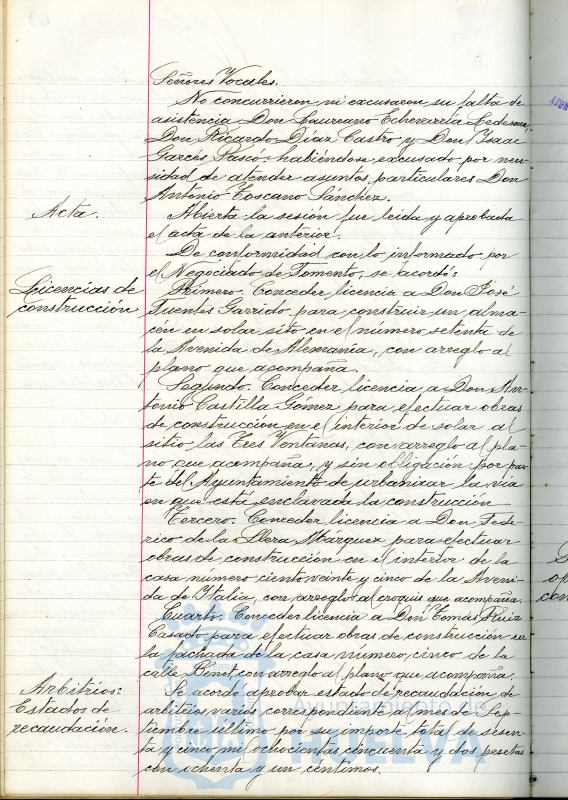 Señores Vocales.
No concurrieron ni excusaron su falta de
asistencia Don Laureano Echevarría Ledesma,
Don Ricardo Díaz Castro y Don Isaac
Garcés Pascó, habiéndose excusado por nece-
sidad de atender asuntos particulares Don
Antonio Toscano Sánchez.
Acta.
Abierta la sesión fue leída y aprobada
el acta de la anterior.
De conformidad con lo informado por
el Negociado de Fomento, se acordó:
Licencias de
construcción
Primero. Conceder licencia a Don José
Fuentes Garrido para construir un alma-
cén en solar sito en el número setenta de
la Avenida de Alemania, con arreglo al
plano que acompaña.
Segundo. Conceder licencia a Don An-
tonio Castilla Gómez para efectuar obras
de construcción en el interior de solar al
sitio las Tres Ventanas, con arreglo al pla-
no que acompaña, y sin obligación por par-
te del Ayuntamiento de urbanizar la vía
en que está enclavada la construcción
Tercero. Conceder licencia a Don Fede-
rico de la Llera Marquez para efectuar
obras de construcción en el interior de la
casa numero ciento veinte y cinco de la Aveni-
da de Italia, con arreglo al croquis que acompaña.
Cuarto. Conceder licencia a Don Tomás Ruiz
Casado para efectuar obras de construcción en
la fachada de la casa número cinco de la
calle Benot con arreglo al plano que acompaña.
Arbitrios:
Estados de
recaudación.
Se acordó aprobar estado de recaudación de
arbitrios varios correspondiente al mes de Sep-
tiembre último por su importe total de sesen-
ta y cinco mil ochocientas cincuenta y dos pesetas
con ochenta y un céntimos.
Ayuntamiento de
HUELVA